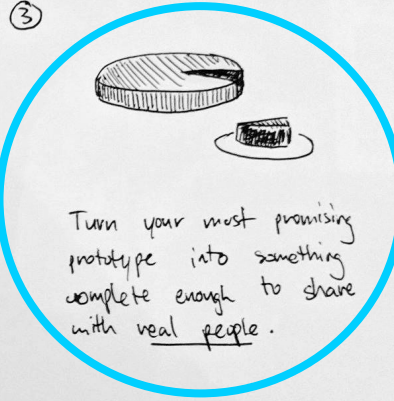 ③
Turn your most promising
prototype into something
complete enough to share
with real people.